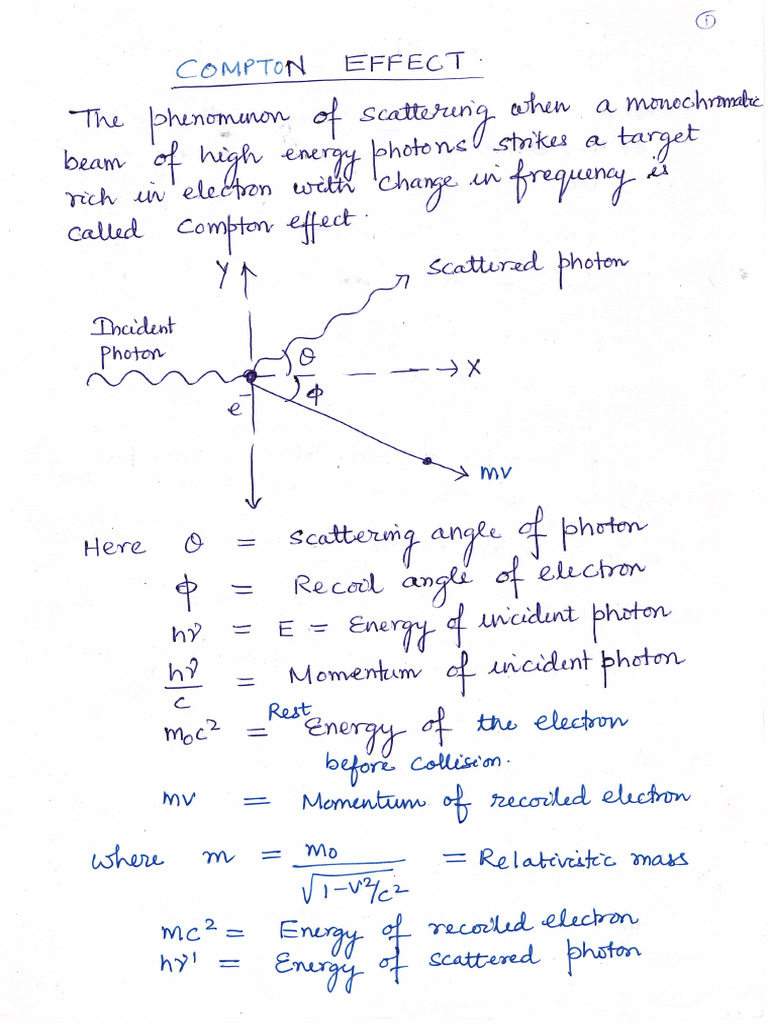 ①
COMPTON EFFECT.
The phenominon of scattering when a monochromatic
beam of high energy photons strikes a target
rich in electron with change in frequency is
called Compton effect.
Y
Scattered photon
Incident
Photon
θ
X
e⁻
ϕ
mv
Here θ = Scattering angle of photon
ϕ = Recoil angle of electron
hν = E = Energy of incident photon
hν/c = Momentum of incident photon
m₀c² = Rest Energy of the electron
before collision.
mv = Momentum of recoiled electron
where m = m₀/√1-v²/c² = Relativistic mass
mc² = Energy of recoiled electron
hν' = Energy of scattered photon